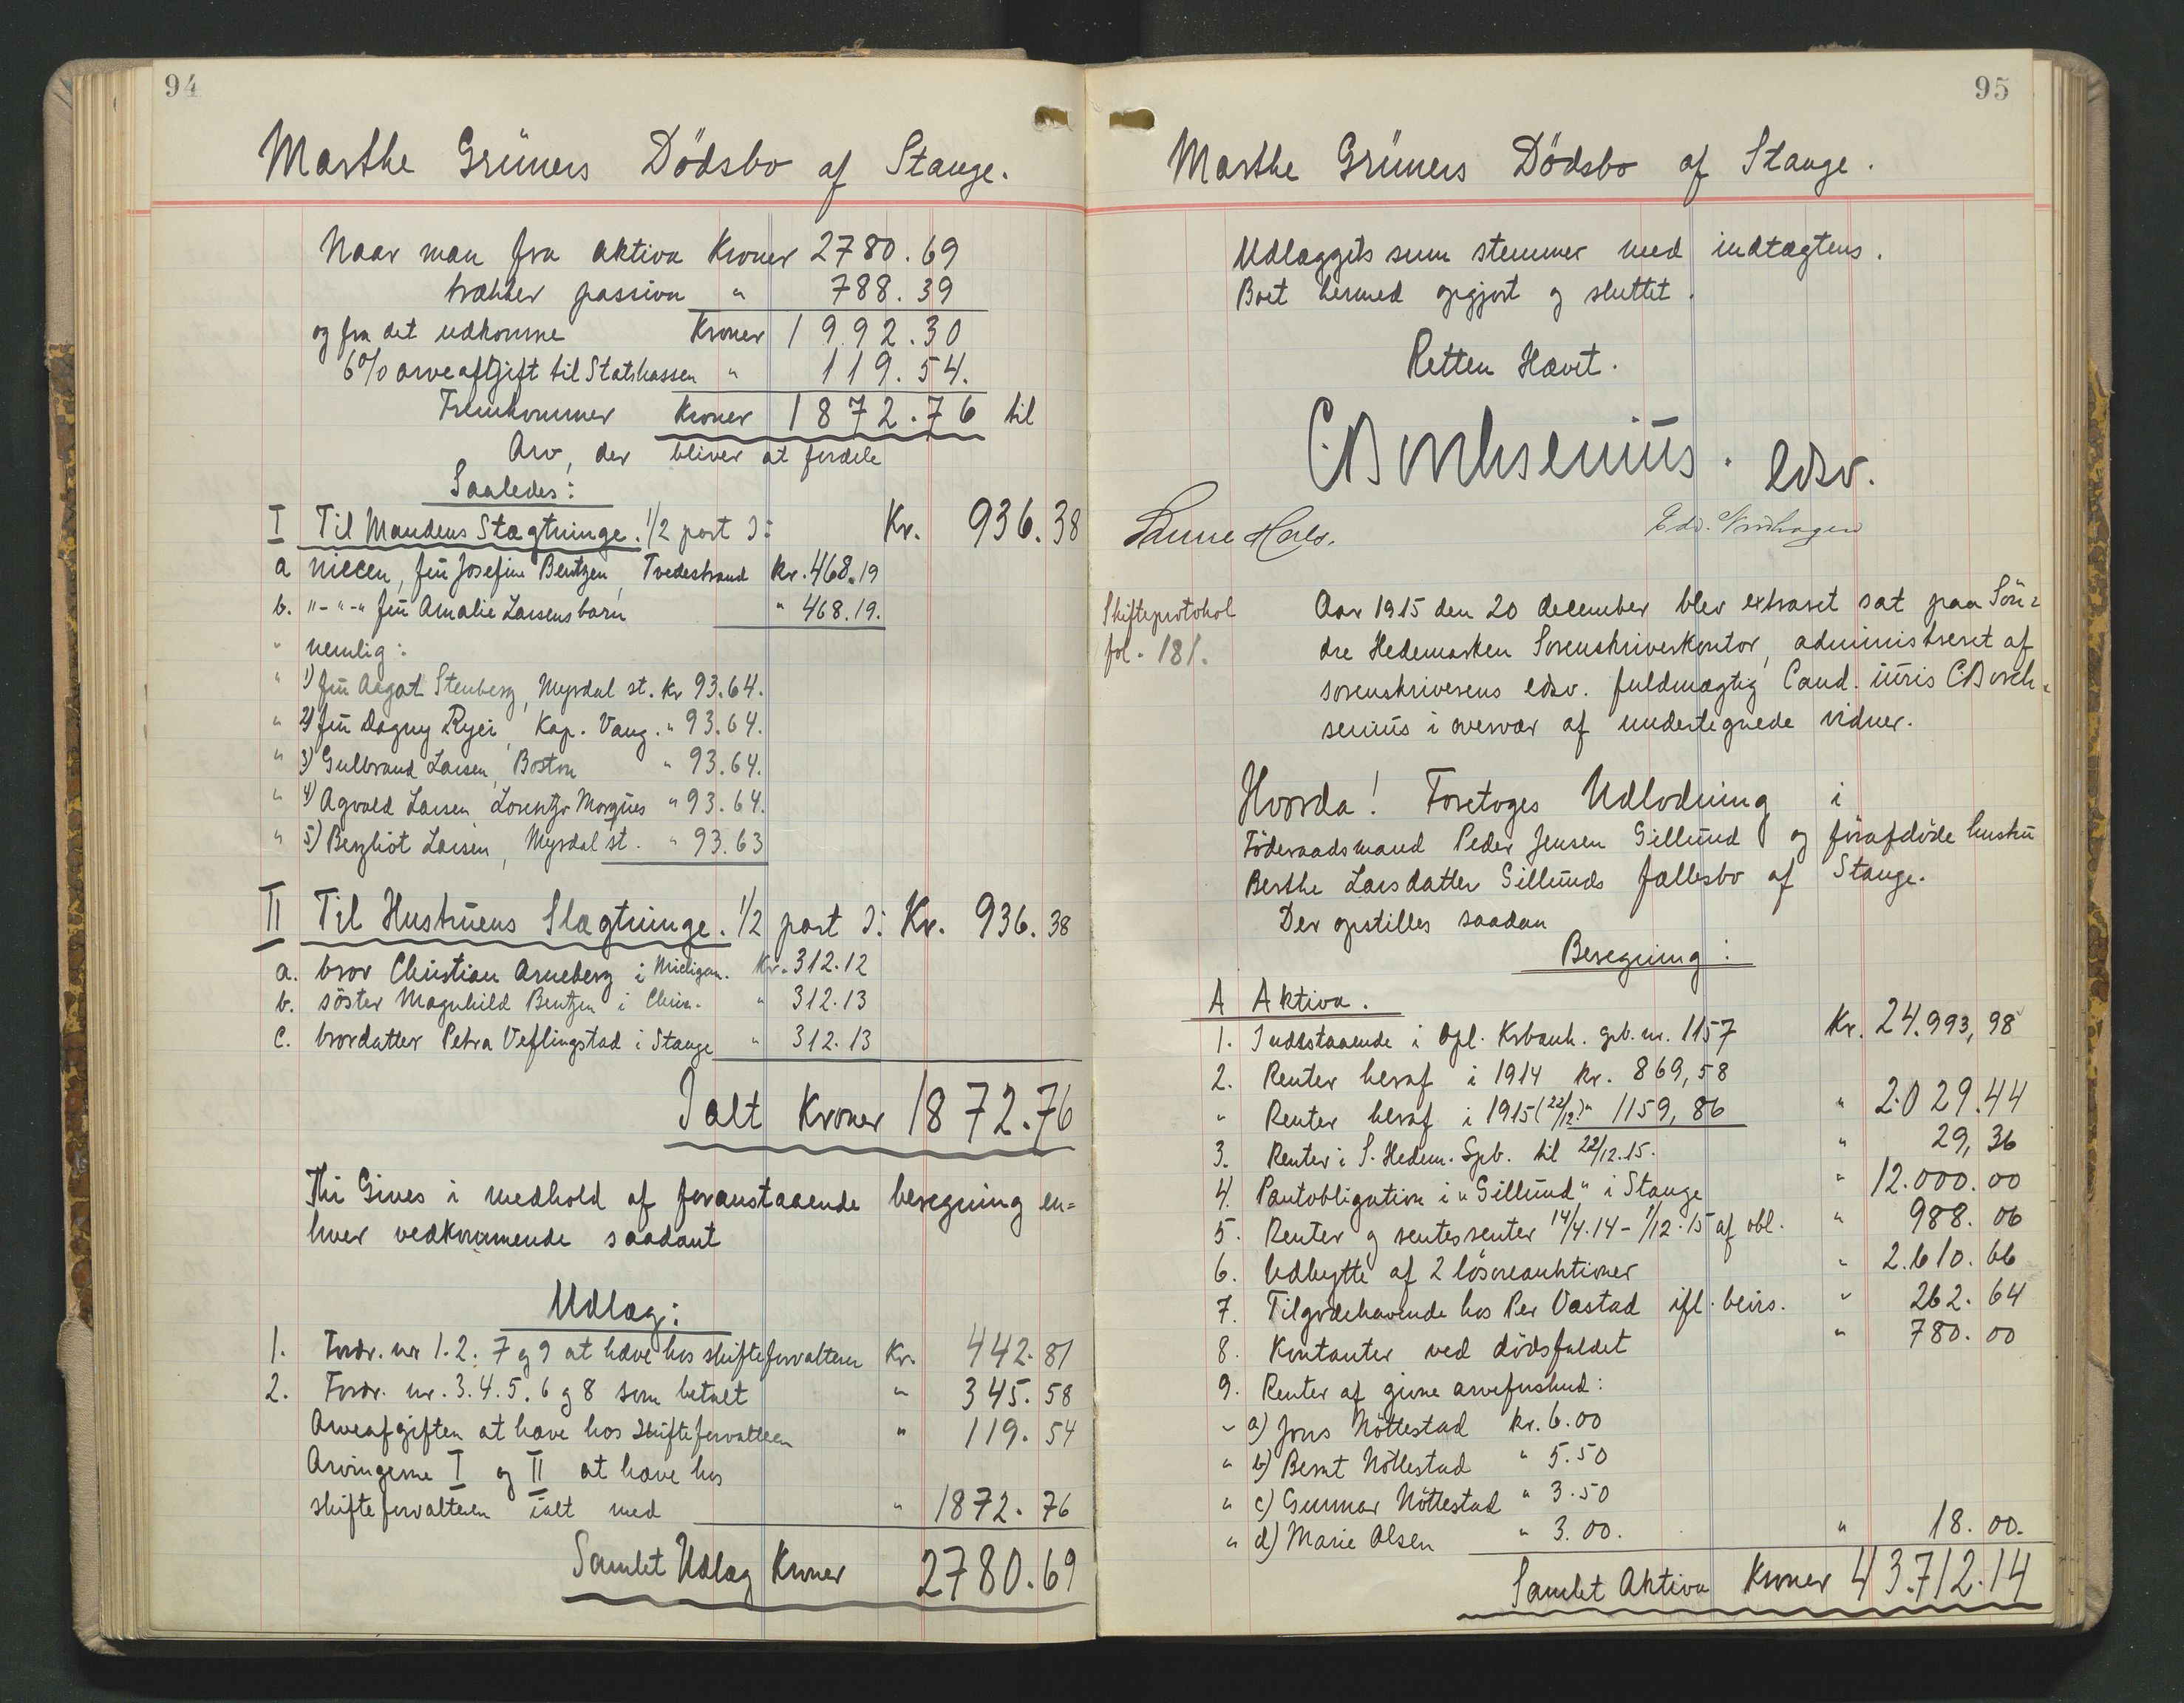 94
Marthe Grüners Dödsbo af Stange.
Naar man fra aktiva Kroner 2780.69
trækker passiva " 788.39
og fra det udkomne Kroner 1992.30
6% arveafgift til Statskassen " 119.54.
Fremkommer Kroner 1872.76 til
Arv, der bliver at fordele
Saaledes:
I Til Mandens Slægtninge. 1/2 part ɔ: Kr. 936.38
a niecen, fru Josefine Bentzen, Tvedestrand Kr. 468.19
b. "-"-" fru Amalie Larsens barn " 468.19.
" nemlig:
" 1) fru Aagot Stenberg, Myrdal st. Kr 93.64.
" 2) fru Dagny Ryei, Kap. Vang. " 93.64.
" 3) Gulbrand Larsen, Boston " 93.64.
" 4) Agvald Larsen Lorentzo Morques " 93.64.
" 5) Bergliot Larsen, Myrdal st. " 93.63
II Til Hustruens Slægtninge. 1/2 part ɔ: Kr. 936.38
a. bror Christian Arneberg i Michigan. Kr. 312.12
b. söster Magnhild Bentzen i Chria. " 312.13
c. brordatter Petra Veflingstad i Stange " 312.13
Ialt Kroner 1872.76
Thi Gives i medhold af foranstaaende beregning en=
hver vedkommende saadant
Udlæg:
1. Fordr. nr 1. 2. 7 og 9 at hæve hos skifteforvalteren Kr. 442.81
2. Fordr. nr. 3. 4. 5. 6 og 8 som betalt " 345.58
Arveafgiften at hæve hos Skifteforvalteren " 119.54
Arvingerne I og II at hæve hos
skifteforvalteren ialt med " 1872.76
Samlet Udlæg Kroner 2780.69
95
Marthe Grüners Dödsbo af Stange.
Udlæggets sum stemmer med indtægtens.
Boet hermed opgjort og sluttet.
Retten Hævet.
C. Borchsenius. edsv.
Skifteprotokol
fol. 181.
Aar 1915 den 20 december blev extraret sat paa Sön=
dre Hedemarken Sorenskriverkontor, administreret af
sorenskriverens edsv. fuldmægtig Cand. iuris C. Borch=
senius i overvær af undertegnede vidner.
Hvorda! Foretoges Udlodning i
Föderaadsmand Peder Jensen Gillund og förafdöde hustru
Berthe Larsdatter Gillunds fællesbo af Stange.
Der opstilles saadan
Beregning:
A Aktiva.
1. Indestaaende i Opl. Krbank. spb. nr. 1157 Kr. 24.993,98
2. Renter heraf i 1914 kr. 869,58
" Renter heraf i 1915 (22/12) " 1159,86 " 2.029.44
3. Renter i S. Hedem. Spb. til 22/12.15. " 29,36
4. Pantobligation i "Gillund" i Stange " 12.000.00
5. Renter og rentesrenter 14/4.14 - 1/12.15 af obl. " 988.06
6. Udbytte af 2 lösöreauktioner " 2.610.66
7. Tilgodehavende hos Per Vastad ifl. bevis. " 262.64
8. Kontanter ved dödsfaldet " 780.00
9. Renter af givne arveforskud:
" a) Jens Nöttestad kr. 6.00
" b) Bernt Nöttestad " 5.50
" c) Gunnar Nöttestad " 3.50
" d) Marie Olsen " 3.00. " 18.00.
Samlet Aktiva Kroner 43.712.14